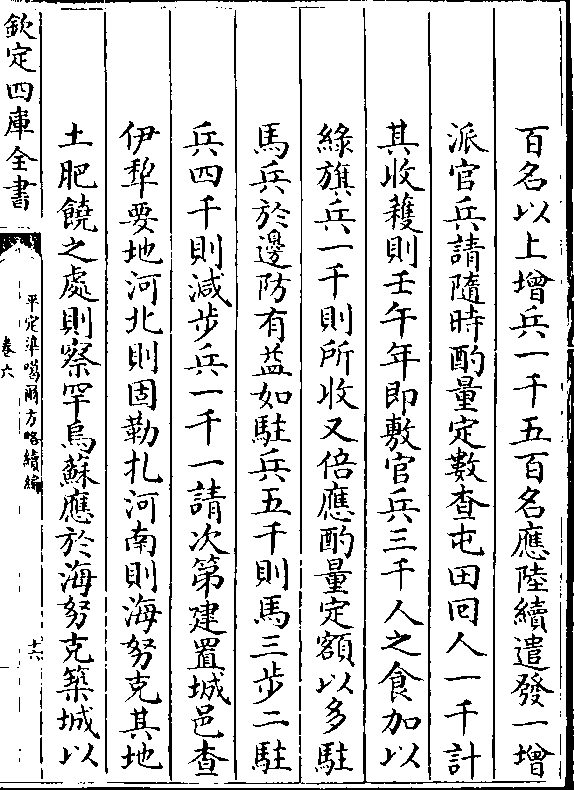 百名以上增兵一千五百名應陸續遣發一增
派官兵請隨時酌量定數查屯田回人一千計
其收穫則壬午年即敷官兵三千人之食加以
綠旗兵一千則所收又倍應酌量定額以多駐
馬兵於邊防有益如駐兵五千則馬三步二駐
兵四千則減步兵一千一請次第建置城邑查
伊犂要地河北則固勒扎河南則海努克其地
土肥饒之處則察罕烏蘇應於海努克築城以
欽定四庫全書
平定準噶爾方略續編
卷六
十六